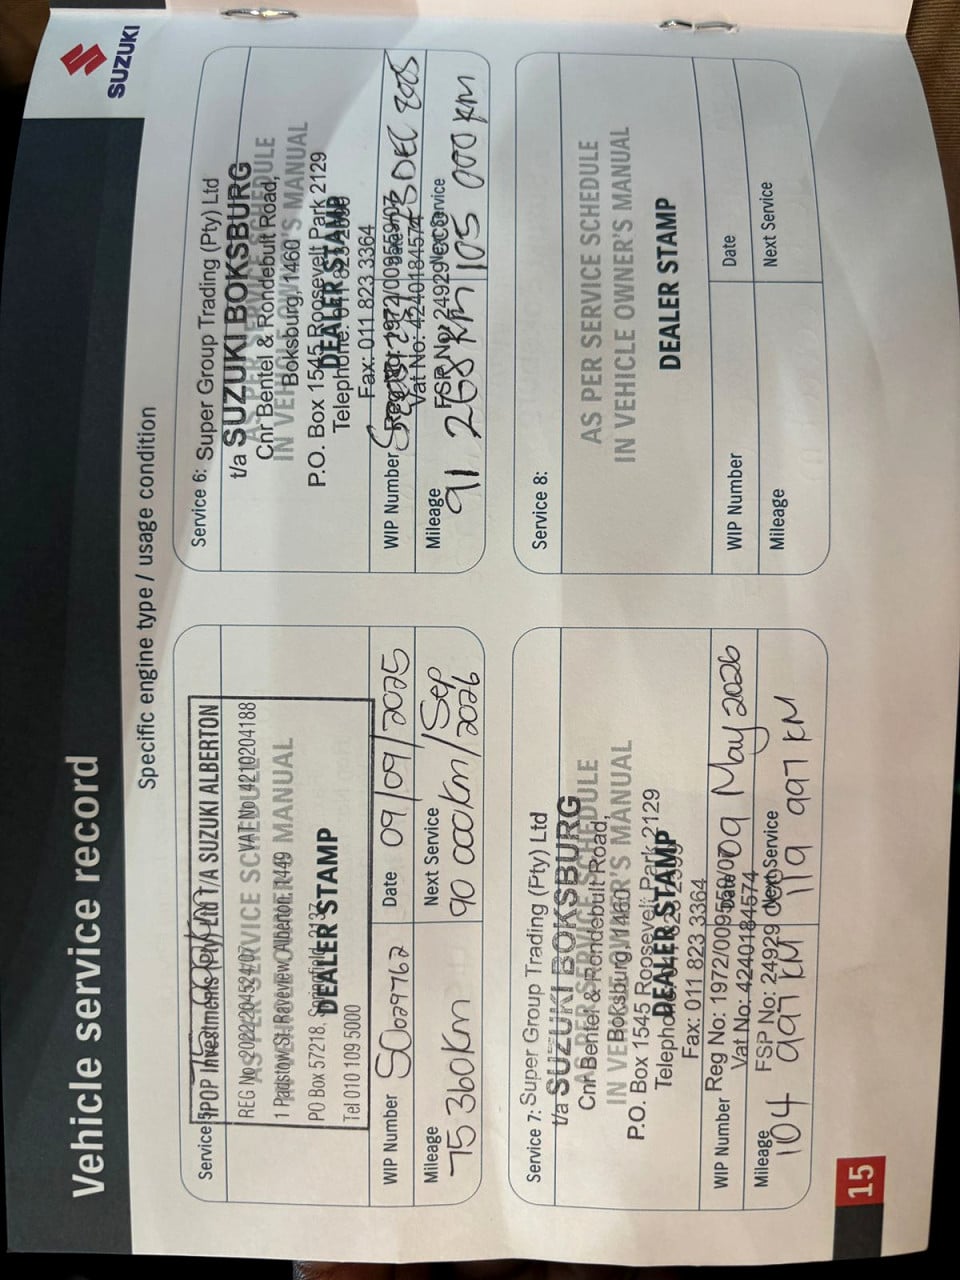 Vehicle service record
SUZUKI
Specific engine type / usage condition
Service 5:
IPOP Investments (Pty) Ltd T/A SUZUKI ALBERTON
REG No 2022/204524/07 VAT No 4210204188
AS PER SERVICE SCHEDULE
1 Padstow St, Raceview, Alberton, 1449
IN VEHICLE OWNER'S MANUAL
PO Box 57218, Springfield, 2137
DEALER STAMP
Tel 010 109 5000
WIP Number S0029762 Date 09/09/2025
Mileage Next Service
75 360km 90 000km/Sep 2026
Service 6: Super Group Trading (Pty) Ltd
t/a SUZUKI BOKSBURG
AS PER SERVICE SCHEDULE
Cnr Bentel & Rondebult Road,
IN VEHICLE OWNER'S MANUAL
Boksburg, 1460
P.O. Box 1545 Roosevelt Park 2129
DEALER STAMP
Telephone:
Fax: 011 823 3364
WIP Number Reg No: 1972/009559/07 Date 3 DEC 2025
Vat No: 4240184574
Mileage FSP No: 24929 Next Service
91 268 km 105 000 km
Service 7: Super Group Trading (Pty) Ltd
t/a SUZUKI BOKSBURG
AS PER SERVICE SCHEDULE
Cnr Bentel & Rondebult Road,
IN VEHICLE OWNER'S MANUAL
Boksburg, 1460
P.O. Box 1545 Roosevelt Park 2129
DEALER STAMP
Telephone:
Fax: 011 823 3364
WIP Number Reg No: 1972/009559/07 Date 09 May 2026
Vat No: 4240184574
Mileage FSP No: 24929 Next Service
104 997 KM 119 997 KM
Service 8:
AS PER SERVICE SCHEDULE
IN VEHICLE OWNER'S MANUAL
DEALER STAMP
WIP Number Date
Mileage Next Service
15